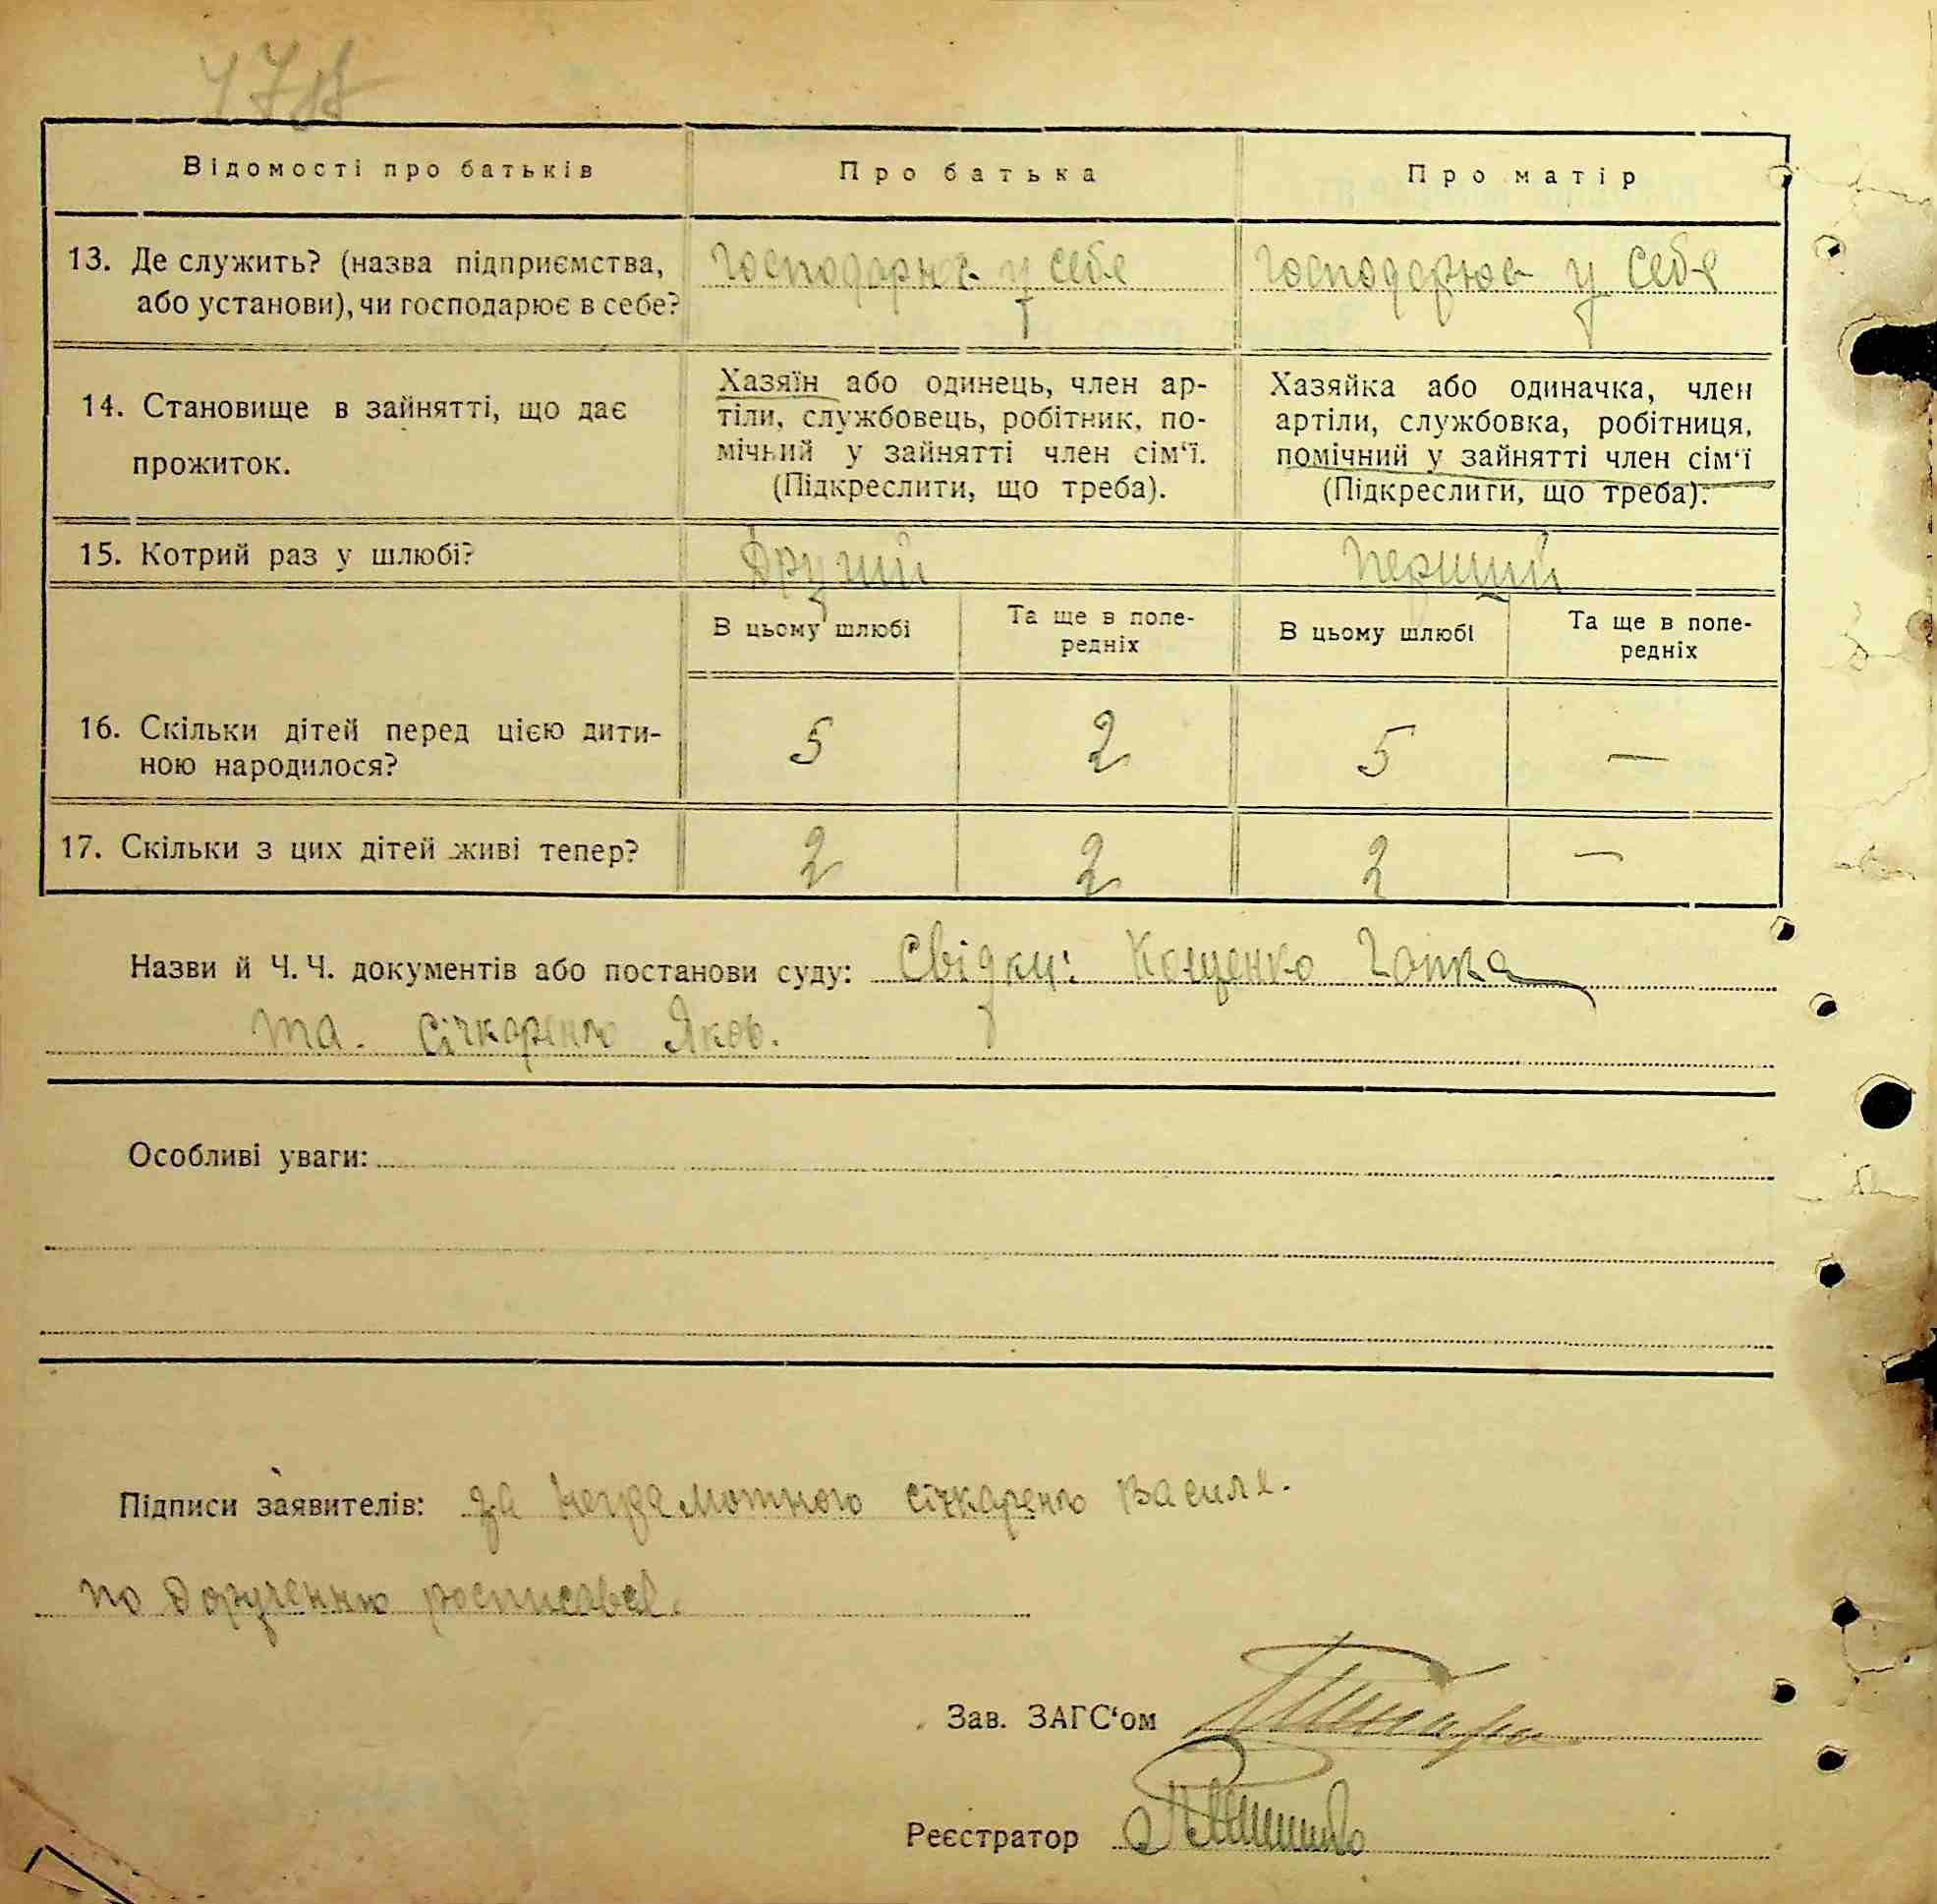 Відомості про батьків
Про батька
Про матір
13. Де служить? (назва підприємства,
або установи), чи господарює в себе?
господарює у себе
господарює у себе
14. Становище в зайнятті, що дає
прожиток.
Хазяїн або одинець, член ар-
тіли, службовець, робітник, по-
мічний у зайнятті член сім‘ї.
(Підкреслити, що треба).
Хазяйка або одиначка, член
артіли, службовка, робітниця,
помічний у зайнятті член сім‘ї
(Підкреслити, що треба).
15. Котрий раз у шлюбі?
Другий
Перший
В цьому шлюбі
Та ще в попе-
редніх
В цьому шлюбі
Та ще в попе-
редніх
16. Скільки дітей перед цією дити-
ною народилося?
5
2
5
—
17. Скільки з цих дітей живі тепер?
2
2
2
—
Назви й Ч. Ч. документів або постанови суду: Свідки: Гапка
та. Січкаренко Яков.
Особливі уваги:
Підписи заявителів: за негдамотного січкаренко Василя.
по дорученню росписавсь.
Зав. ЗАГС‘ом
Реєстратор